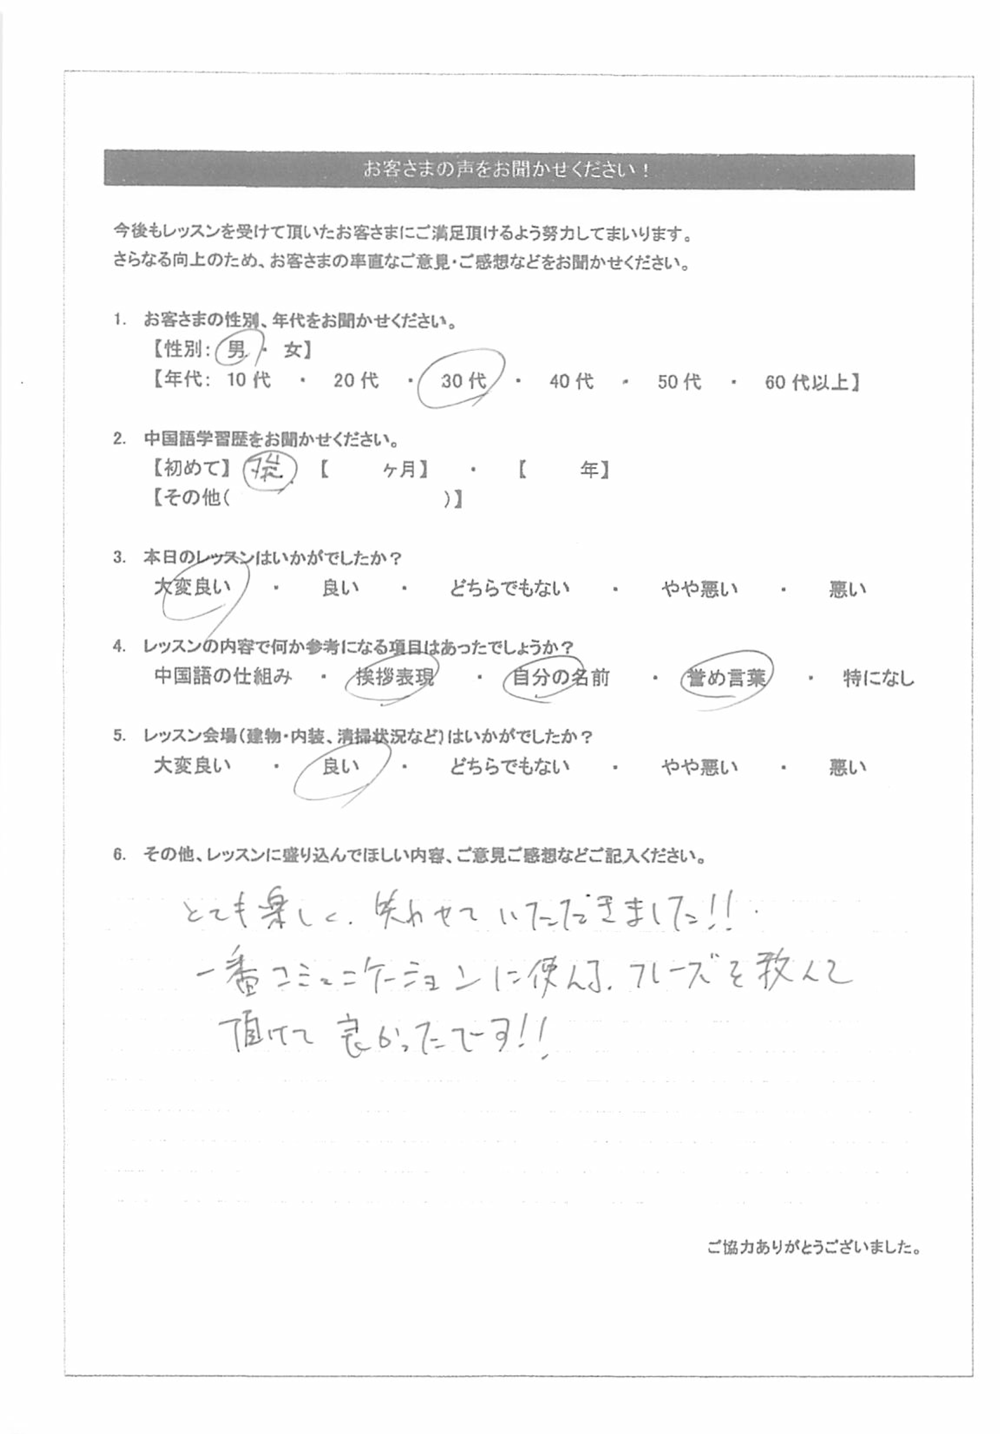 お客さまの声をお聞かせください！
今後もレッスンを受けて頂いたお客さまにご満足頂けるよう努力してまいります。
さらなる向上のため、お客さまの率直なご意見・ご感想などをお聞かせください。
1. お客さまの性別、年代をお聞かせください。
【性別： 男 ・ 女】
【年代： 10代 ・ 20代 ・ 30代 ・ 40代 ・ 50代 ・ 60代以上】
2. 中国語学習歴をお聞かせください。
【初めて】 【 ヶ月】 ・ 【 年】
【その他（ ）】
3. 本日のレッスンはいかがでしたか？
大変良い ・ 良い ・ どちらでもない ・ やや悪い ・ 悪い
4. レッスンの内容で何か参考になる項目はあったでしょうか？
中国語の仕組み ・ 挨拶表現 ・ 自分の名前 ・ 誉め言葉 ・ 特になし
5. レッスン会場（建物・内装、清掃状況など）はいかがでしたか？
大変良い ・ 良い ・ どちらでもない ・ やや悪い ・ 悪い
6. その他、レッスンに盛り込んでほしい内容、ご意見ご感想などご記入ください。
とても楽しく、 いただきました!!
一番コミュニケーションに使える、フレーズを教えて
頂けて良かったです!!
ご協力ありがとうございました。